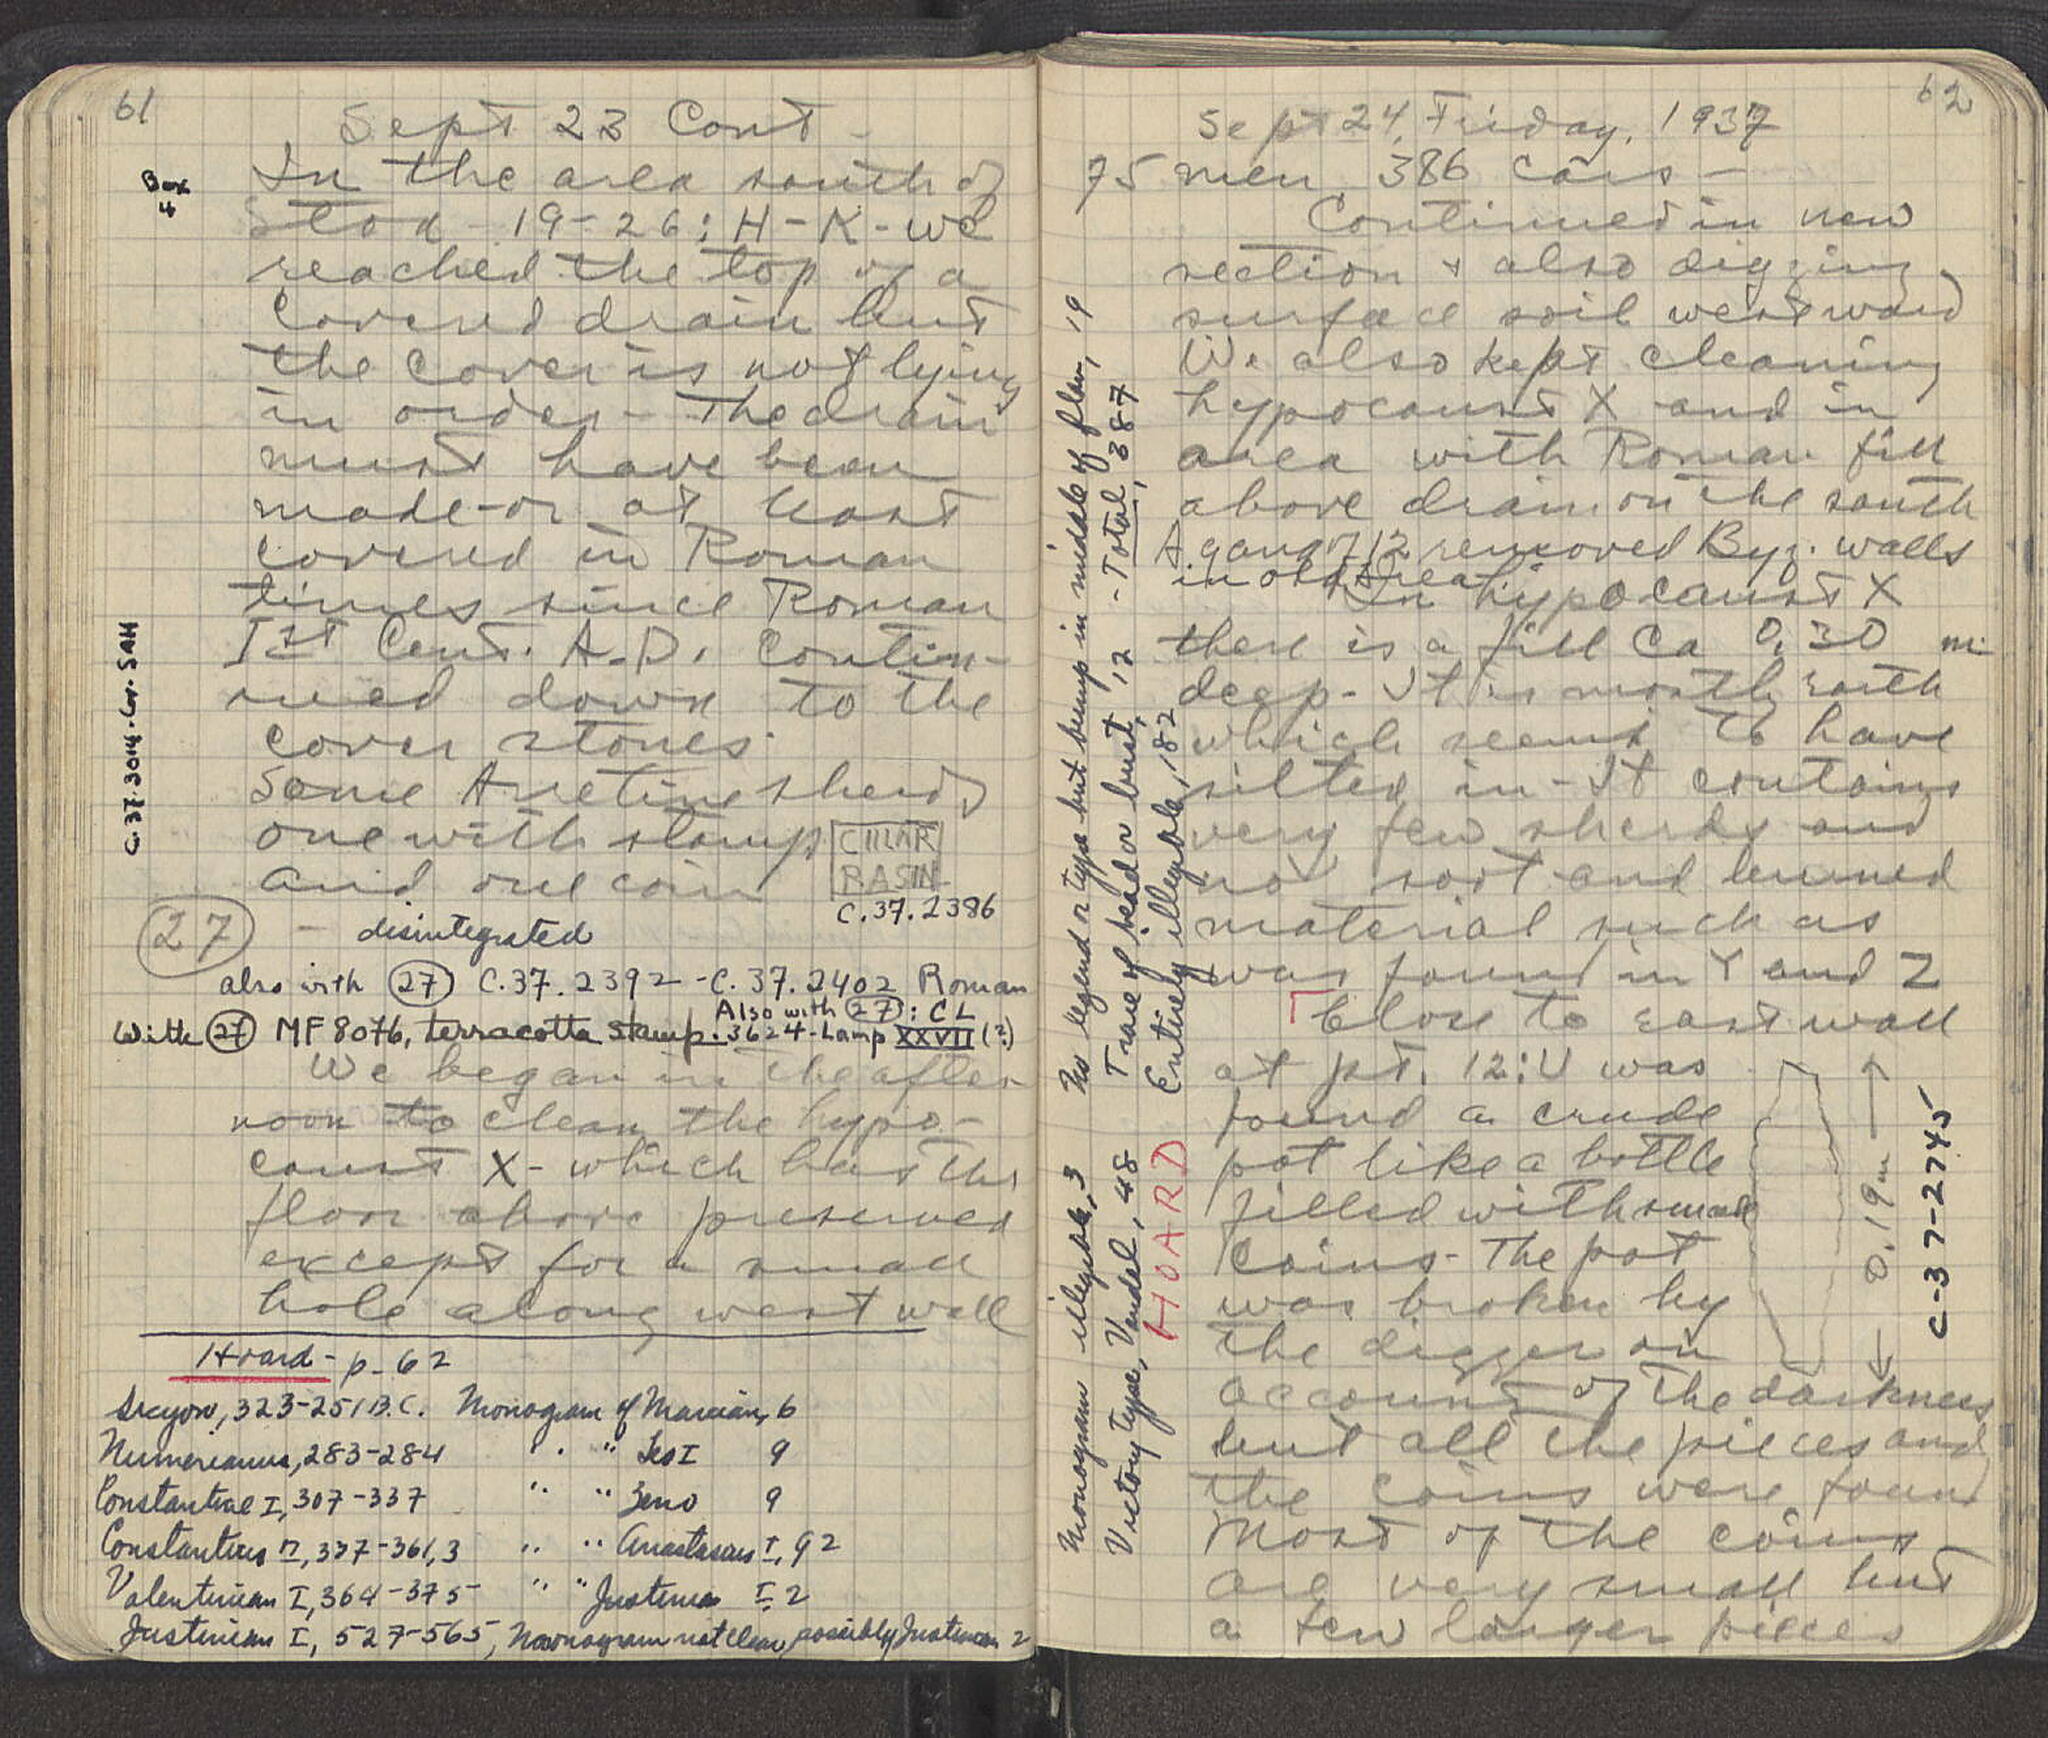 61
Sept 23 Cont -
Box
4
In the area south of
Stoa - 19-26: H-K- we
reached the top of a
covered drain but
the cover is not lying
in order - The drain
must have been
made - or at least
covered in Roman
times since Roman
Ist Cent. A.D. contin-
ued down to the
cover stones.
Some Arretine sherds
one with stamp
and one coin
CIIIAR
RASIN
C.37.2386
C.37.3014. Cor. SAH
27 - disintegrated
also with 27 C.37.2392 - C.37.2402 Roman
Also with 27: CL
With 27 MF 8076, terracotta stamp. 3624-Lamp XXVII (?)
We began in the after
noon to clean the hypo-
caust X - which has the
floor above preserved
except for a small
hole along west wall
Hoard - p. 62
Sicyon, 323-251 B.C. Monogram of Marcian, 6
Numerianus, 283-284 " " Leo I 9
Constantine I, 307-337 " " Zeno 9
Constantius II, 337-361, 3 " " Anastasius I, 92
Valentinian I, 364-375 " " Justinus I, 2
Justinian I, 527-565, Monogram not clear, possibly Justinian 2
62
Sept 24, Friday, 1937
75 men 386 cars -
Continued in new
section + also digging
surface soil westward
We also kept cleaning
hypocaust X and in
area with Roman fill
above drain on the south
A gang of 12 removed Byz. walls
in old area.
In hypocaust X
there is a fill Ca 0.30 m
deep - It is mostly earth
which seems to have
silted in - It contains
very few sherds and
no soot and burned
material such as
was found in Y and Z
Close to east wall
at pt. 12:U was
found a crude
pot like a bottle
filled with small
coins - The pot
was broken by
the digger on
account of the darkness
but all the pieces and
the coins were found
Most of the coins
are very small but
a few larger pieces
0.19m
C-37-2745
HOARD
Monogram illegible, 3 No legend or type but bump in middle of flan, 19
Victory type, Vandal, 48 Trace of head or bust, 12 - Total, 387
Entirely illegible, 182